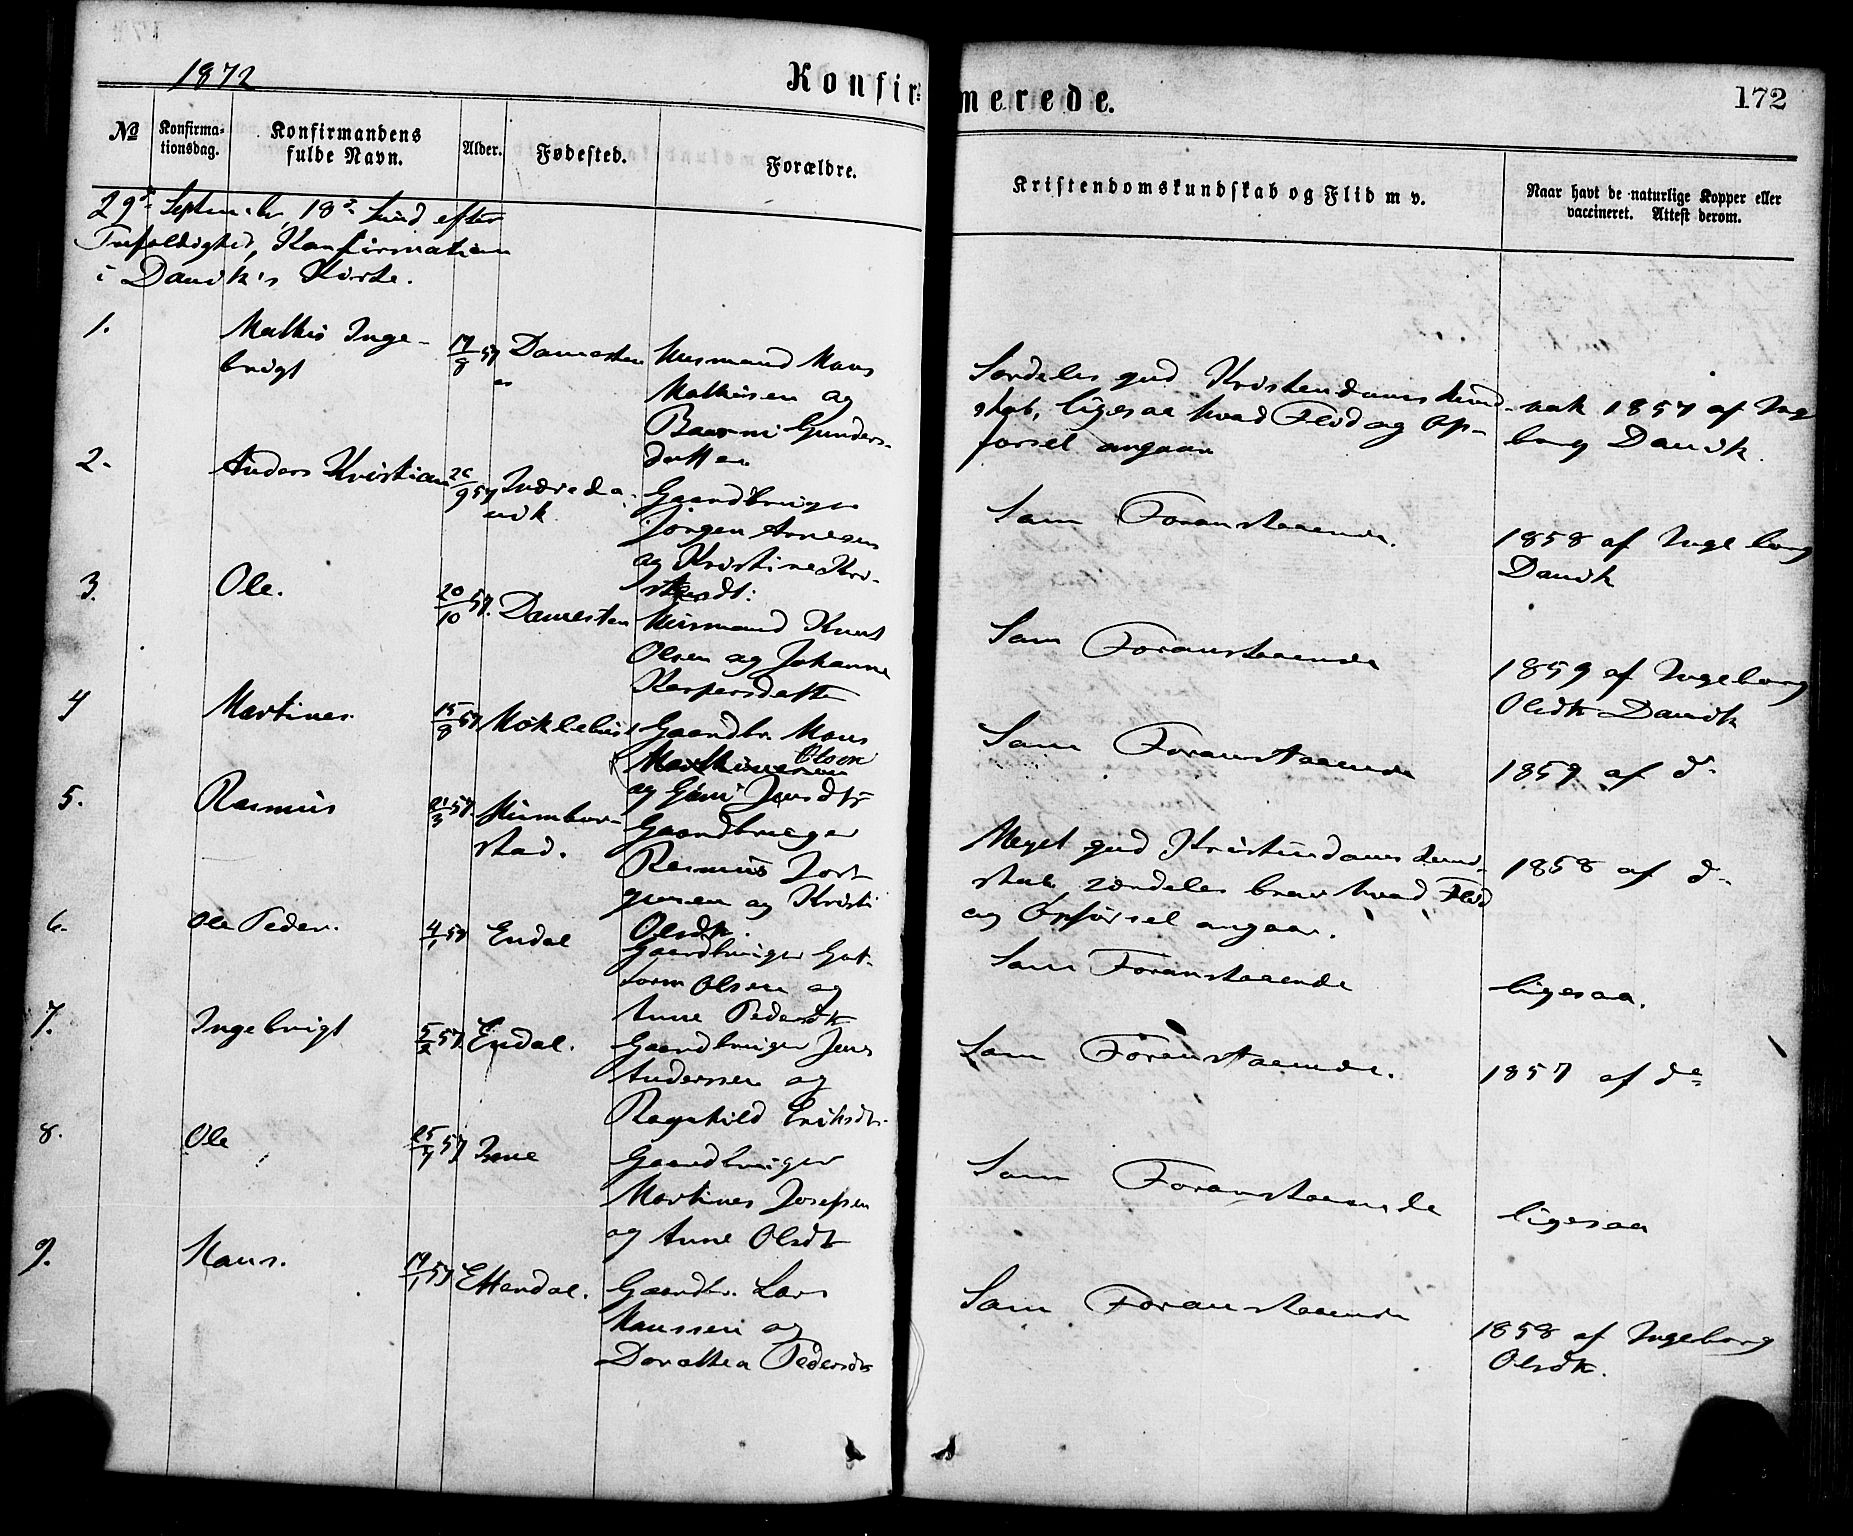 1872
Konfir=
merede.
172
No
Konfirma=
tionsdag.
Konfirmandens
fulde Navn.
Alder.
Fødested.
Forældre.
Kristendomskundskab og Flid m v.
Naar havt de naturlige Kopper eller
vaccineret. Attest derom.
29de September, 18de Sønd efter
Trefoldighed, Konfirmation
i Davik's Kirke.
1.
Mathis Inge-
brigt
17/8 57
Damesten
Husmand Hans
Mathisen og
Gunders-
datter
Særdeles god Kristendomskund-
skab, ligesaa hvad Flid og Op-
førsel angaar
vak 1857 af Inge
borg Davik.
2.
Anders Kristian
26/9 57
Indreda-
vik
Gaardbruger
Jörgen Arnesen
og Kristine Kri-
stensdt:
Som Foranstaaende.
1858 af Inge borg
Davik
3.
Ole.
20/10 57.
Damesten
Husmand Knut
Olsen og Johanne
Kaspersdatter
Som Foranstaaende
1859 af Ingeborg
Olsdtr Davik
4
Martines.
15/8 57
Möklebust
Gaardbr. Hans
Olsen
og Jensdtr
Som Foranstaaende
1859 af do
5.
Rasmus
21/3 57.
Humbor-
stad.
Gaardbruger
Rasmus Jört
gensen og Kristi
Olsdtr.
Meget god Kristendomskund-
skab, særdeles brav hvad Flid
og Opförsel angaar.
1858 af do
6.
Ole Peder.
4/1 57
Endal
Gaardbruger Gut-
torm Olsen og
Anne Pedersdtr
Som Foranstaaende
ligesaa.
7.
Ingebrigt
5/2 57
Endal.
Gaardbruger Jens
Anderssen og
Ragnhild Eriksdtr.
Som Foranstaaende.
1857 af do
8.
Ole
25/7 57
Inne
Gaardbruger
Martines Josefsen
og Anne Olsdtr
Som Foranstaaende
ligesaa
9.
Hans.
19/1 57
Ettendal.
Gaardbr. Lars
Hanssen og
Dorothea Pedersdtr
Som Foranstaaende
1858 af Ingeborg
Olsdtr.